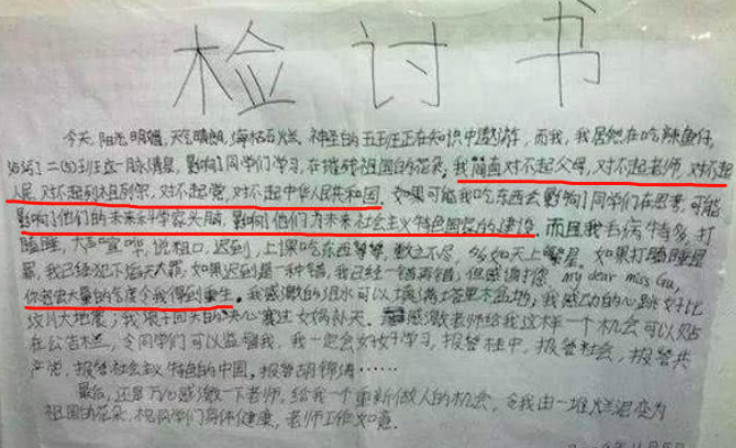 检讨书
今天,阳光明媚,天气晴朗,海枯石烂。神圣的五班正在知识中遨游,而我,我居然在吃辣鱼仔,
二(5)班这一脉清泉,影响了同学们学习,在摧残祖国的花朵。我简直对不起父母,对不起老师,对不起
人民,对不起列祖列宗,对不起党,对不起中华人民共和国。如果可能我吃东西会影响了同学们在思考,可能
影响了他们的未来科学家头脑,影响了他们为未来社会主义特色国家的建设。而且我毛病特多,打
瞌睡,大声喧哗,说粗口,迟到,上课吃东西等等,数之不尽,多如天上繁星。如果打瞌睡是
罪,我已经犯下滔天大罪;如果迟到是一种错,我已经一错再错,但感谢您 my dear miss Gu,
你宽大量的态度令我得到重生。我感激的泪水可以填满塔里木盆地,我感动的心跳好比
汶川大地震,我浪子回头的决心赛过女娲补天。感激老师给我这样一个机会可以贴
在公告栏,令同学们可以监督我,我一定会好好学习,报答桂中,报答社会,报答共
产党,报答社会主义特色的中国,报答胡锦涛……
最后,还是万分感激一下老师,给我一个重新做人的机会,令我由一堆烂泥变为
祖国的花朵,祝同学们身体健康,老师工作如意。